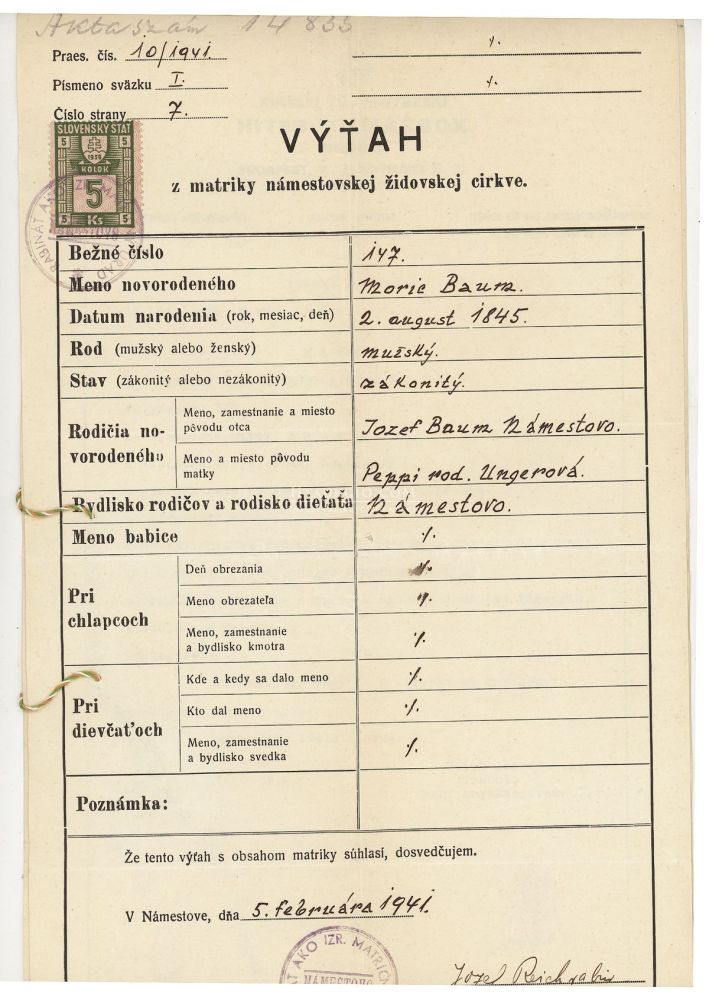 Aktaszám 14 833
Praes. čís. 10/1941.
Písmeno sväzku I.
Číslo strany 7.
·/.
·/.
SLOVENSKÝ ŠTÁT
5 5
1939
KOLOK
5
5 Ks 5
VÝŤAH
z matriky námestovskej židovskej cirkve.
Bežné číslo 147.
Meno novorodeného Moric Baum.
Datum narodenia (rok, mesiac, deň) 2. august 1845.
Rod (mužský alebo ženský) mužský.
Stav (zákonitý alebo nezákonitý) zákonitý.
Rodičia no-
vorodeného
Meno, zamestnanie a miesto
pôvodu otca
Jozef Baum Námestovo.
Meno a miesto pôvodu
matky
Peppi rod. Ungerová.
Bydlisko rodičov a rodisko dieťaťa Námestovo.
Meno babice ·/.
Pri
chlapcoch
Deň obrezania ·/.
Meno obrezateľa ·/.
Meno, zamestnanie
a bydlisko kmotra ·/.
Pri
dievčaťoch
Kde a kedy sa dalo meno ·/.
Kto dal meno ·/.
Meno, zamestnanie
a bydlisko svedka ·/.
Poznámka:
Že tento výťah s obsahom matriky súhlasí, dosvedčujem.
V Námestove, dňa 5. februára 1941.
AKO IZR. MATRIČN
NÁMESTOVO
Jozef Reich rabin